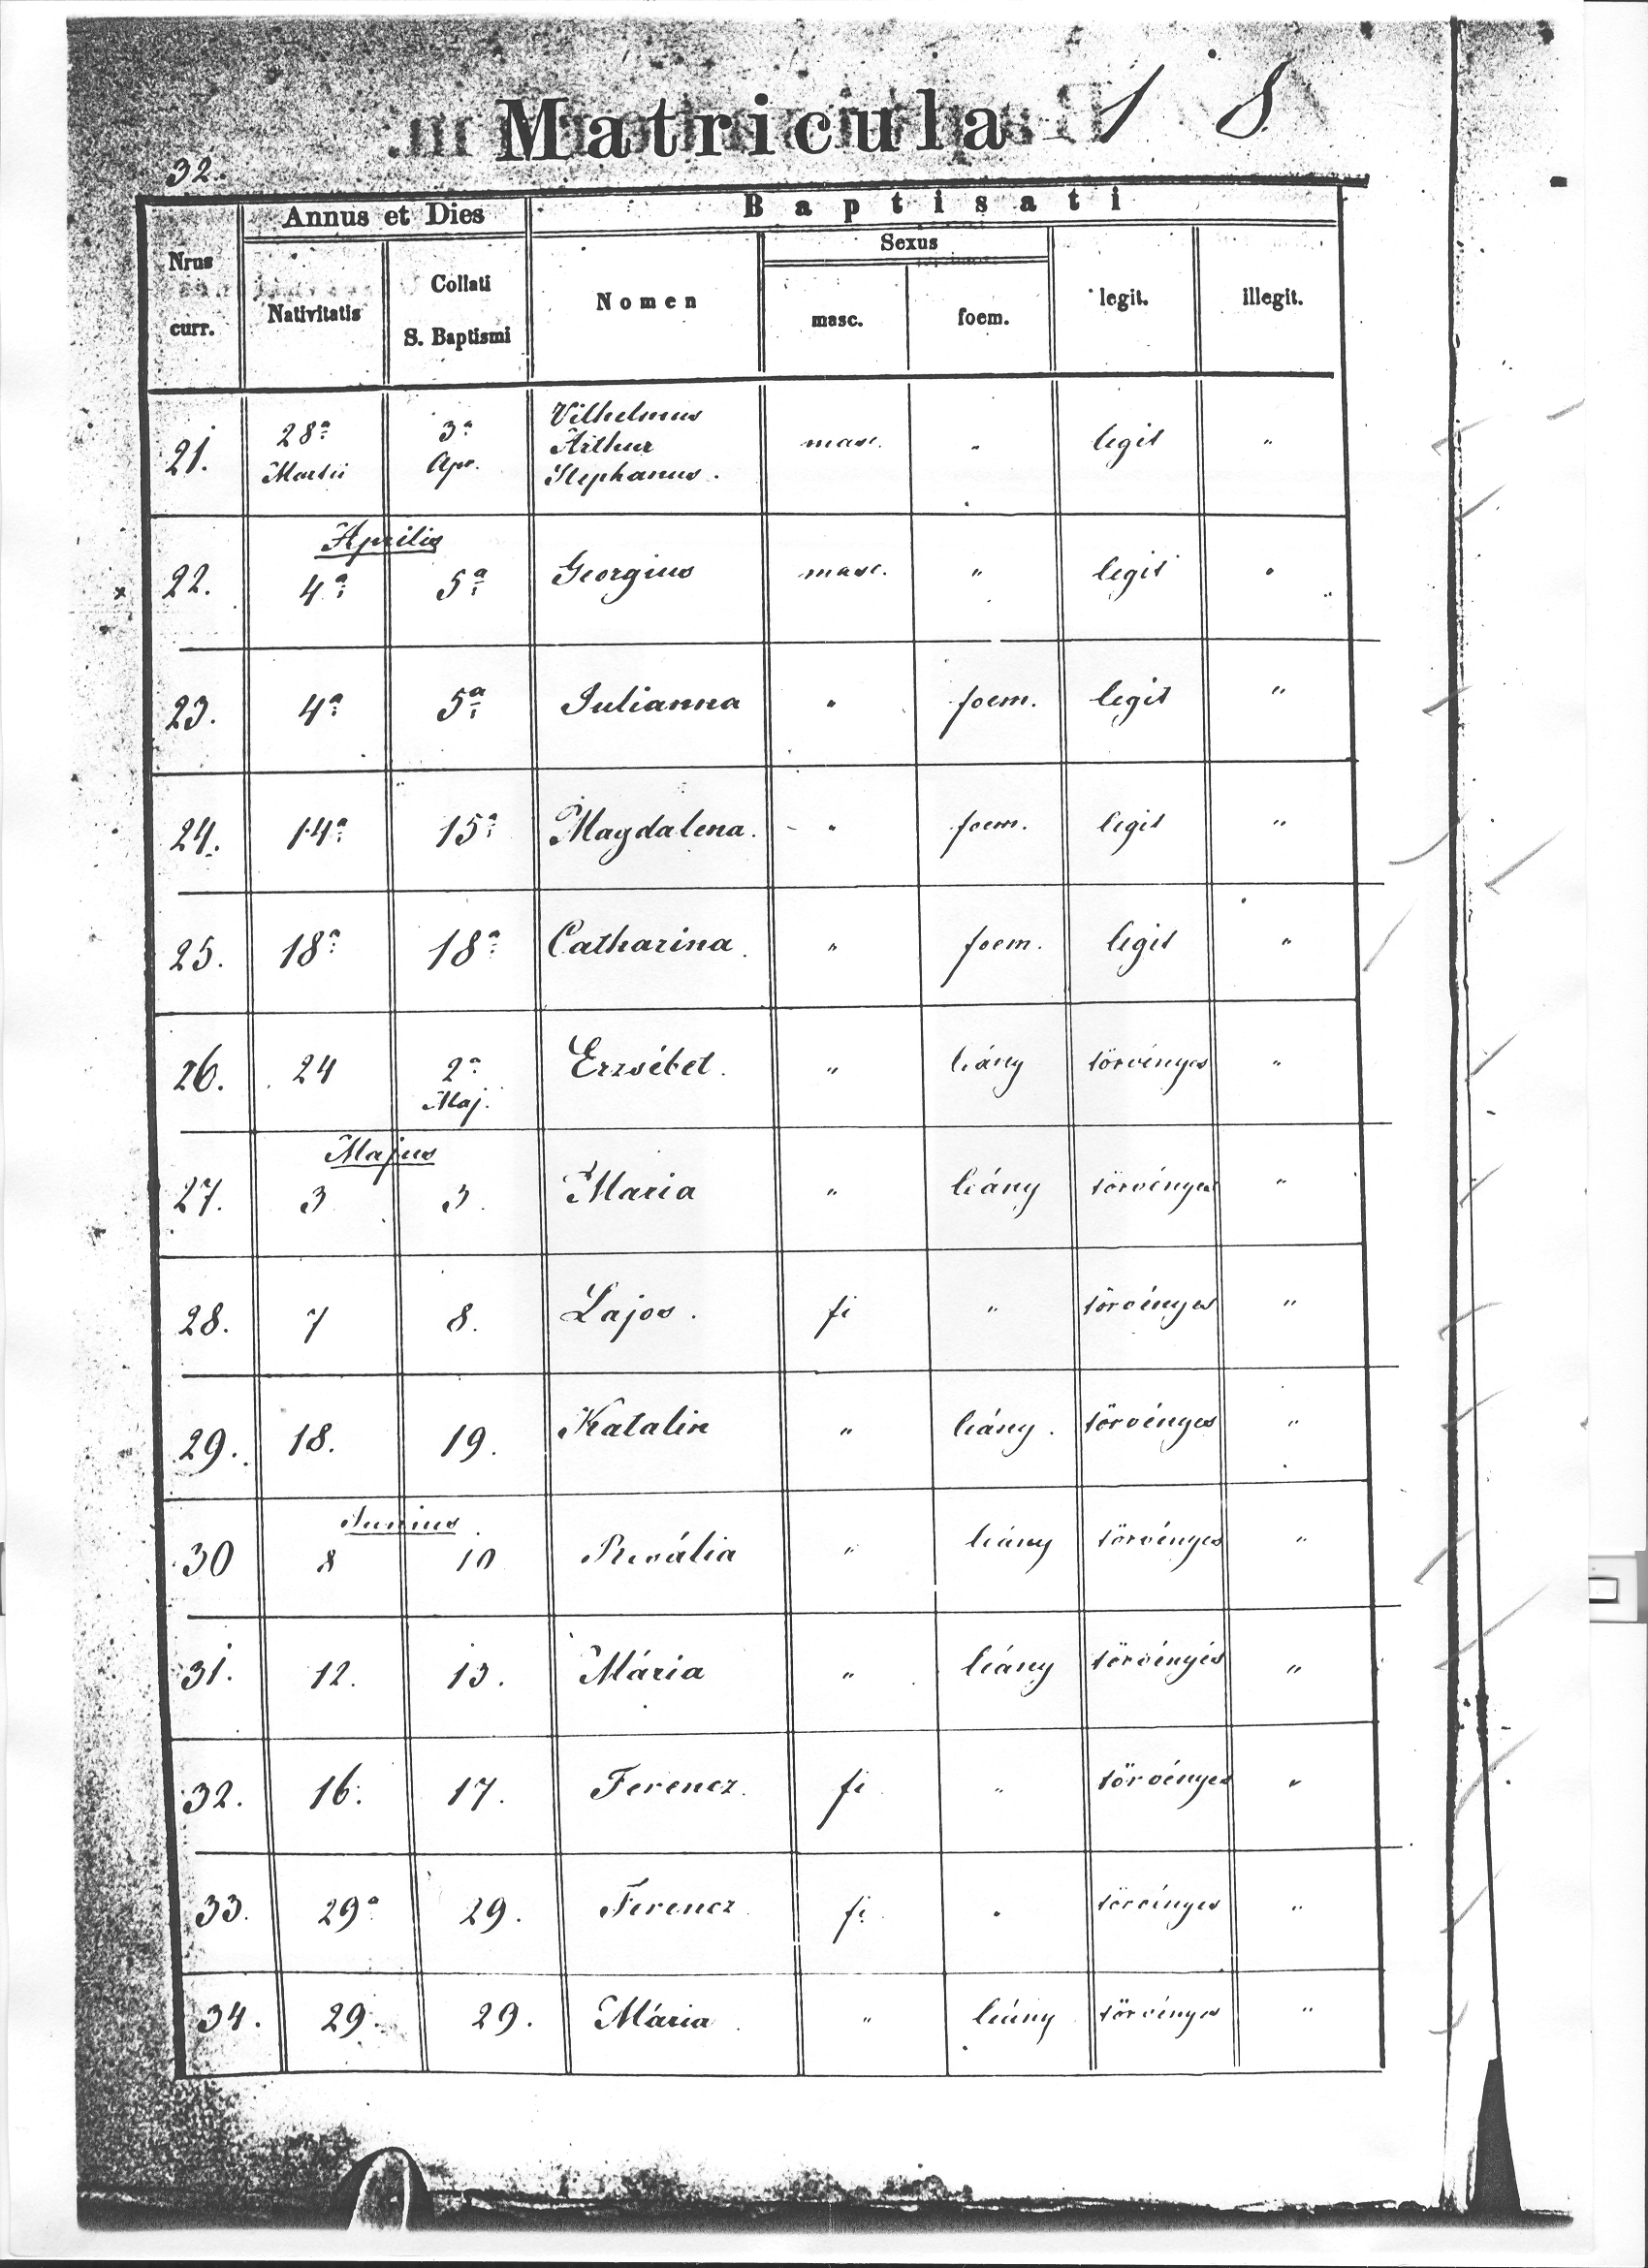 Matricula 1 8
32.
Annus et Dies
Baptisati
Nrus curr.
Nativitatis
Collati S. Baptismi
Nomen
Sexus
masc.
foem.
legit.
illegit.
21. 28a Martii 3a Apr. Vilhelmus Arthur Stephanus. masc. " legit "
Aprilis
22. 4a 5a Georgius masc. " legit "
23. 4a 5a Julianna " foem. legit "
24. 14a 15a Magdalena. " foem. legit "
25. 18a 18a Catharina. " foem. legit "
26. 24 2a Maj. Erzsébet. " leány törvényes "
Majus
27. 3 3. Maria " leány törvényes "
28. 7 8. Lajos. fi " törvényes "
29. 18. 19. Katalin " leány. törvényes "
Junius
30 8 10 " leány törvényes "
31. 12. 13. Mária " leány törvényes "
32. 16. 17. Ferencz. fi " törvényes "
33. 29a 29. Ferencz fi. " törvényes "
34. 29. 29. Mária " leány törvényes "